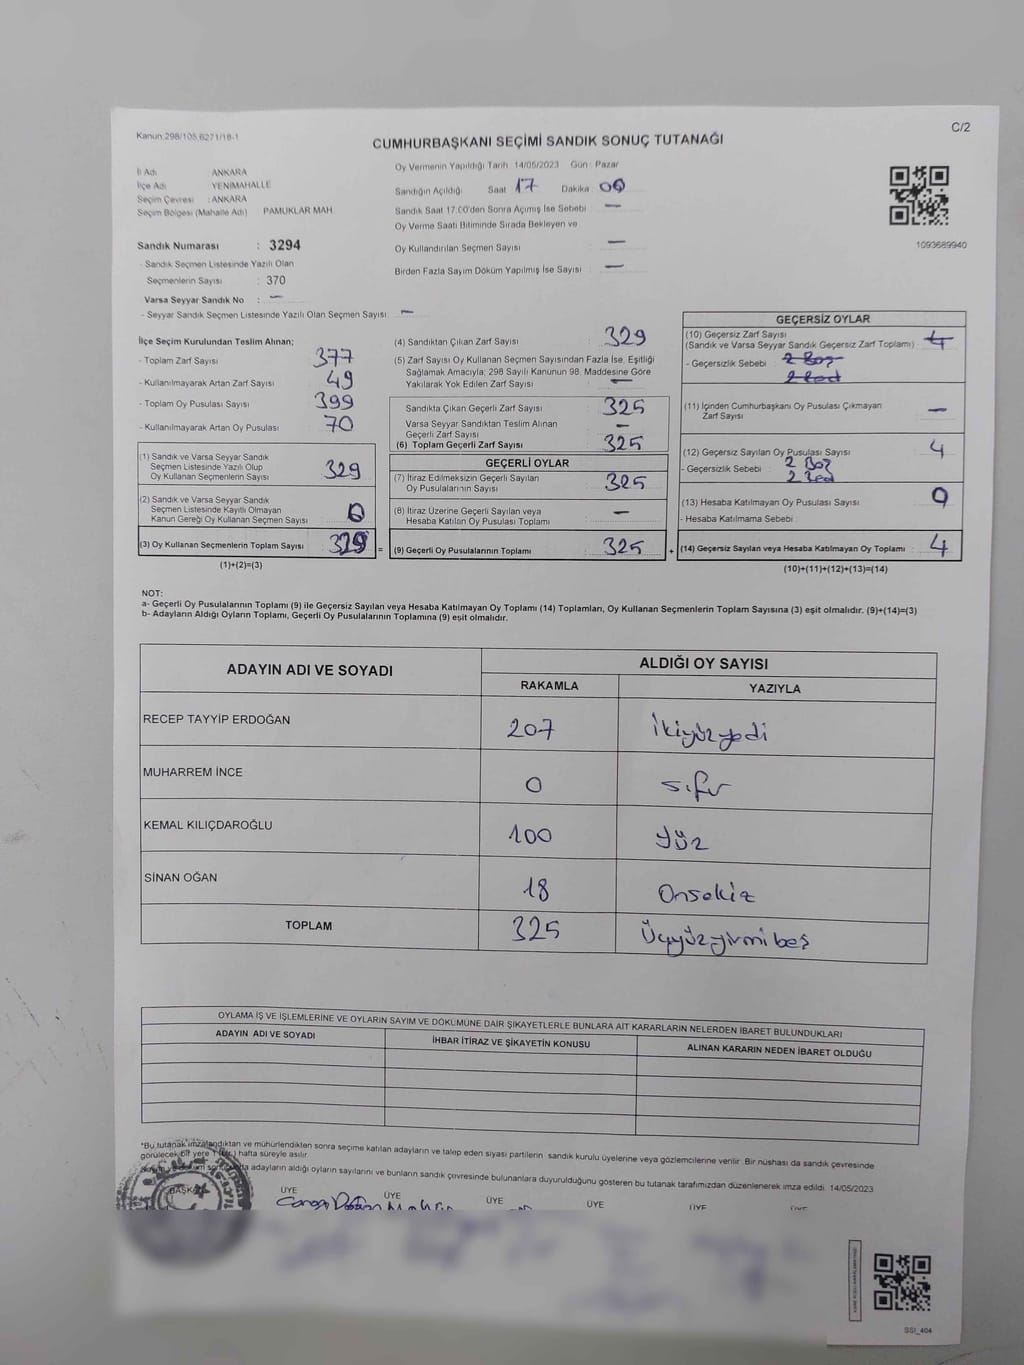 Kanun:298/105,6271/18-1
C/2
CUMHURBAŞKANI SEÇİMİ SANDIK SONUÇ TUTANAĞI
İl Adı ANKARA
İlçe Adı YENİMAHALLE
Seçim Çevresi : ANKARA
Seçim Bölgesi (Mahalle Adı) PAMUKLAR MAH.
Sandık Numarası : 3294
- Sandık Seçmen Listesinde Yazılı Olan
Seçmenlerin Sayısı : 370
Varsa Seyyar Sandık No : —
- Seyyar Sandık Seçmen Listesinde Yazılı Olan Seçmen Sayısı: —
Oy Vermenin Yapıldığı Tarih: 14/05/2023 Gün : Pazar
Sandığın Açıldığı Saat 17 Dakika 00
Sandık Saat 17:00'den Sonra Açımış İse Sebebi : —
Oy Verme Saati Bitiminde Sırada Bekleyen ve
Oy Kullandırılan Seçmen Sayısı : —
Birden Fazla Sayım Döküm Yapılmış İse Sayısı : —
1093689940
İlçe Seçim Kurulundan Teslim Alınan;
- Toplam Zarf Sayısı : 377
- Kullanılmayarak Artan Zarf Sayısı : 49
- Toplam Oy Pusulası Sayısı : 399
- Kullanılmayarak Artan Oy Pusulası : 70
(1) Sandık ve Varsa Seyyar Sandık
Seçmen Listesinde Yazılı Olup
Oy Kullanan Seçmenlerin Sayısı : 329
(2) Sandık ve Varsa Seyyar Sandık
Seçmen Listesinde Kayıtlı Olmayan
Kanun Gereği Oy Kullanan Seçmen Sayısı : 0
(3) Oy Kullanan Seçmenlerin Toplam Sayısı : 329 =
(1)+(2)=(3)
(4) Sandıktan Çıkan Zarf Sayısı : 329
(5) Zarf Sayısı Oy Kullanan Seçmen Sayısından Fazla İse, Eşitliği
Sağlamak Amacıyla; 298 Sayılı Kanunun 98. Maddesine Göre
Yakılarak Yok Edilen Zarf Sayısı : —
Sandıkta Çıkan Geçerli Zarf Sayısı : 325
Varsa Seyyar Sandıktan Teslim Alınan
Geçerli Zarf Sayısı : —
(6) Toplam Geçerli Zarf Sayısı : 325
GEÇERLİ OYLAR
(7) İtiraz Edilmeksizin Geçerli Sayılan
Oy Pusulalarının Sayısı : 325
(8) İtiraz Üzerine Geçerli Sayılan veya
Hesaba Katılan Oy Pusulası Toplamı : —
(9) Geçerli Oy Pusulalarının Toplamı : 325 +
GEÇERSİZ OYLAR
(10) Geçersiz Zarf Sayısı
(Sandık ve Varsa Seyyar Sandık Geçersiz Zarf Toplamı) : 4
- Geçersizlik Sebebi : 2 Boş
2 Red
(11) İçinden Cumhurbaşkanı Oy Pusulası Çıkmayan
Zarf Sayısı : —
(12) Geçersiz Sayılan Oy Pusulası Sayısı : 4
- Geçersizlik Sebebi : 2 Boş
2 Red
(13) Hesaba Katılmayan Oy Pusulası Sayısı : 0
- Hesaba Katılmama Sebebi :
(14) Geçersiz Sayılan veya Hesaba Katılmayan Oy Toplamı : 4
(10)+(11)+(12)+(13)=(14)
NOT:
a- Geçerli Oy Pusulalarının Toplamı (9) ile Geçersiz Sayılan veya Hesaba Katılmayan Oy Toplamı (14) Toplamları, Oy Kullanan Seçmenlerin Toplam Sayısına (3) eşit olmalıdır. (9)+(14)=(3)
b- Adayların Aldığı Oyların Toplamı, Geçerli Oy Pusulalarının Toplamına (9) eşit olmalıdır.
ADAYIN ADI VE SOYADI ALDIĞI OY SAYISI
RAKAMLA YAZIYLA
RECEP TAYYİP ERDOĞAN 207 ikiyüzyedi
MUHARREM İNCE 0 sıfır
KEMAL KILIÇDAROĞLU 100 Yüz
SİNAN OĞAN 18 Onsekiz
TOPLAM 325 Üçyüzyirmi beş
OYLAMA İŞ VE İŞLEMLERİNE VE OYLARIN SAYIM VE DÖKÜMÜNE DAİR ŞİKAYETLERLE BUNLARA AİT KARARLARIN NELERDEN İBARET BULUNDUKLARI
ADAYIN ADI VE SOYADI İHBAR İTİRAZ VE ŞİKAYETİN KONUSU ALINAN KARARIN NEDEN İBARET OLDUĞU
*Bu tutanak imzalandıktan ve mühürlendikten sonra seçime katılan adayların ve talep eden siyasi partilerin sandık kurulu üyelerine veya gözlemcilerine verilir. Bir nüshası da sandık çevresinde
görülecek bir yere 1 (bir) hafta süreyle asılır.
adayların aldığı oyların sayılarını ve bunların sandık çevresinde bulunanlara duyurulduğunu gösteren bu tutanak tarafımızdan düzenlenerek imza edildi. 14/05/2023
BAŞKAN ÜYE ÜYE ÜYE ÜYE ÜYE ÜYE
SSI_404